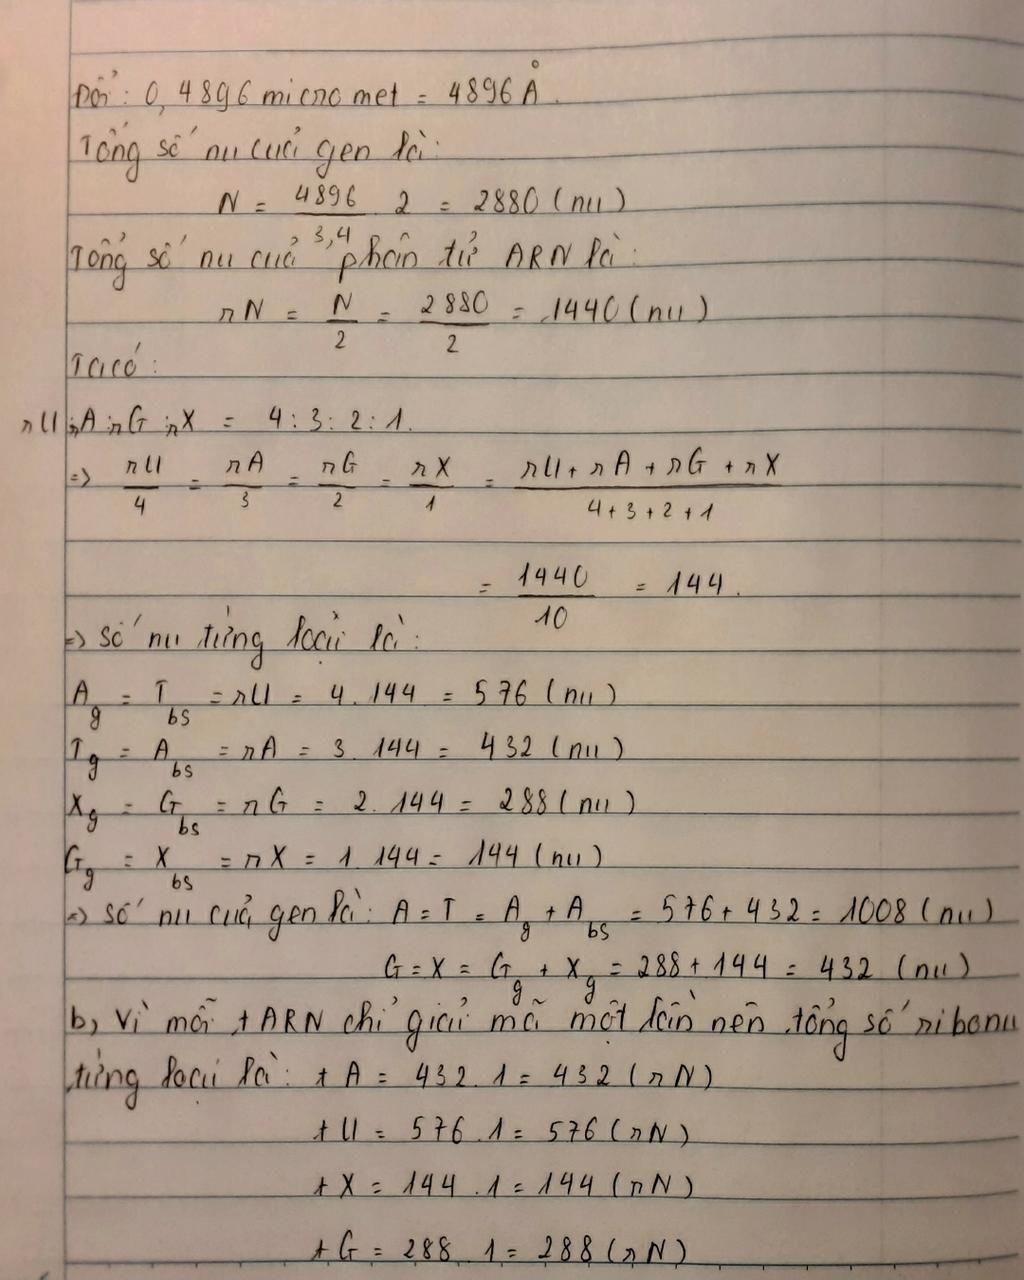 Đổi: 0,4896 micromet = 4896 Å.
Tổng số nu của gen là:
N = 4896/3,4 . 2 = 2880 (nu)
Tổng số nu của phân tử ARN là:
rN = N/2 = 2880/2 = 1440 (nu)
Ta có:
rU : rA : rG : rX = 4 : 3 : 2 : 1.
=> rU/4 = rA/3 = rG/2 = rX/1 = rU + rA + rG + rX/4 + 3 + 2 + 1
= 1440/10 = 144.
=> số nu từng loại là:
Ag = Tbs = rU = 4 . 144 = 576 (nu)
Tg = Abs = rA = 3 . 144 = 432 (nu)
Xg = Gbs = rG = 2 . 144 = 288 (nu)
Gg = Xbs = rX = 1 . 144 = 144 (nu)
=> số nu của gen là: A = T = Ag + Abs = 576 + 432 = 1008 (nu)
G = X = Gg + Xg = 288 + 144 = 432 (nu)
b, Vì mỗi tARN chỉ giải mã một lần nên tổng số ribonu
từng loại là: tA = 432 . 1 = 432 (rN)
tU = 576 . 1 = 576 (rN)
tX = 144 . 1 = 144 (rN)
tG = 288 . 1 = 288 (rN)